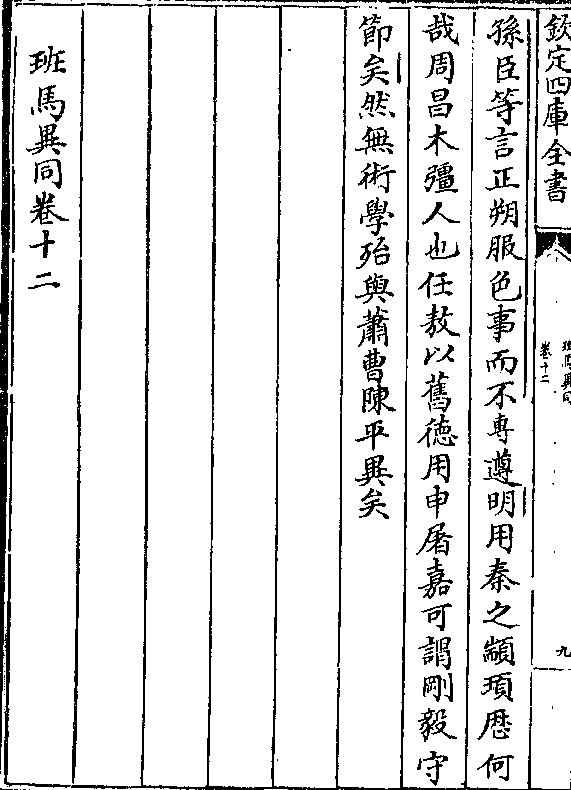 欽定四庫全書
班馬異同
卷十二
九
孫臣等言正朔服色事而不專遵明用秦之顓頊厯何
哉周昌木彊人也任敖以舊徳用申屠嘉可謂剛毅守
節矣然無術學殆與蕭曹陳平異矣
班馬異同卷十二